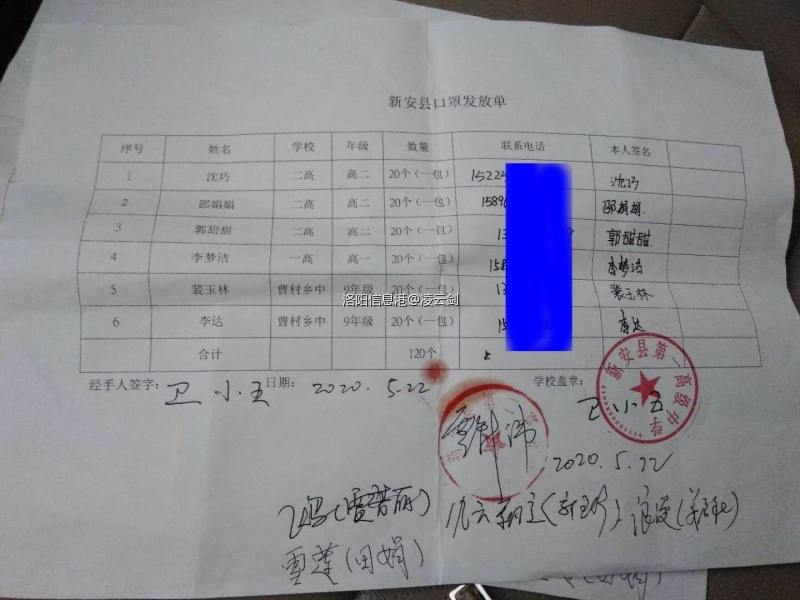 新安县口罩发放单
序号 姓名 学校 年级 数量 联系电话 本人签名
1 沈巧 二高 高二 20个(一包) 15224 沈巧
2 邵娟娟 二高 高二 20个(一包) 1589 邵娟娟
3 郭甜甜 二高 高二 20个(一包) 13 郭甜甜
4 李梦洁 一高 高一 20个(一包) 158 李梦洁
5 裴玉林 曹村乡中 9年级 20个(一包) 13 裴玉林
洛阳信息港@凌云剑
6 李达 曹村乡中 9年级 20个(一包) 15 李达
合计 120个
新安县第一高级中学
经手人签字: 卫小王 日期: 2020.5.22 学校盖章: 卫小王
2020.5.22
雪莲(田娟)